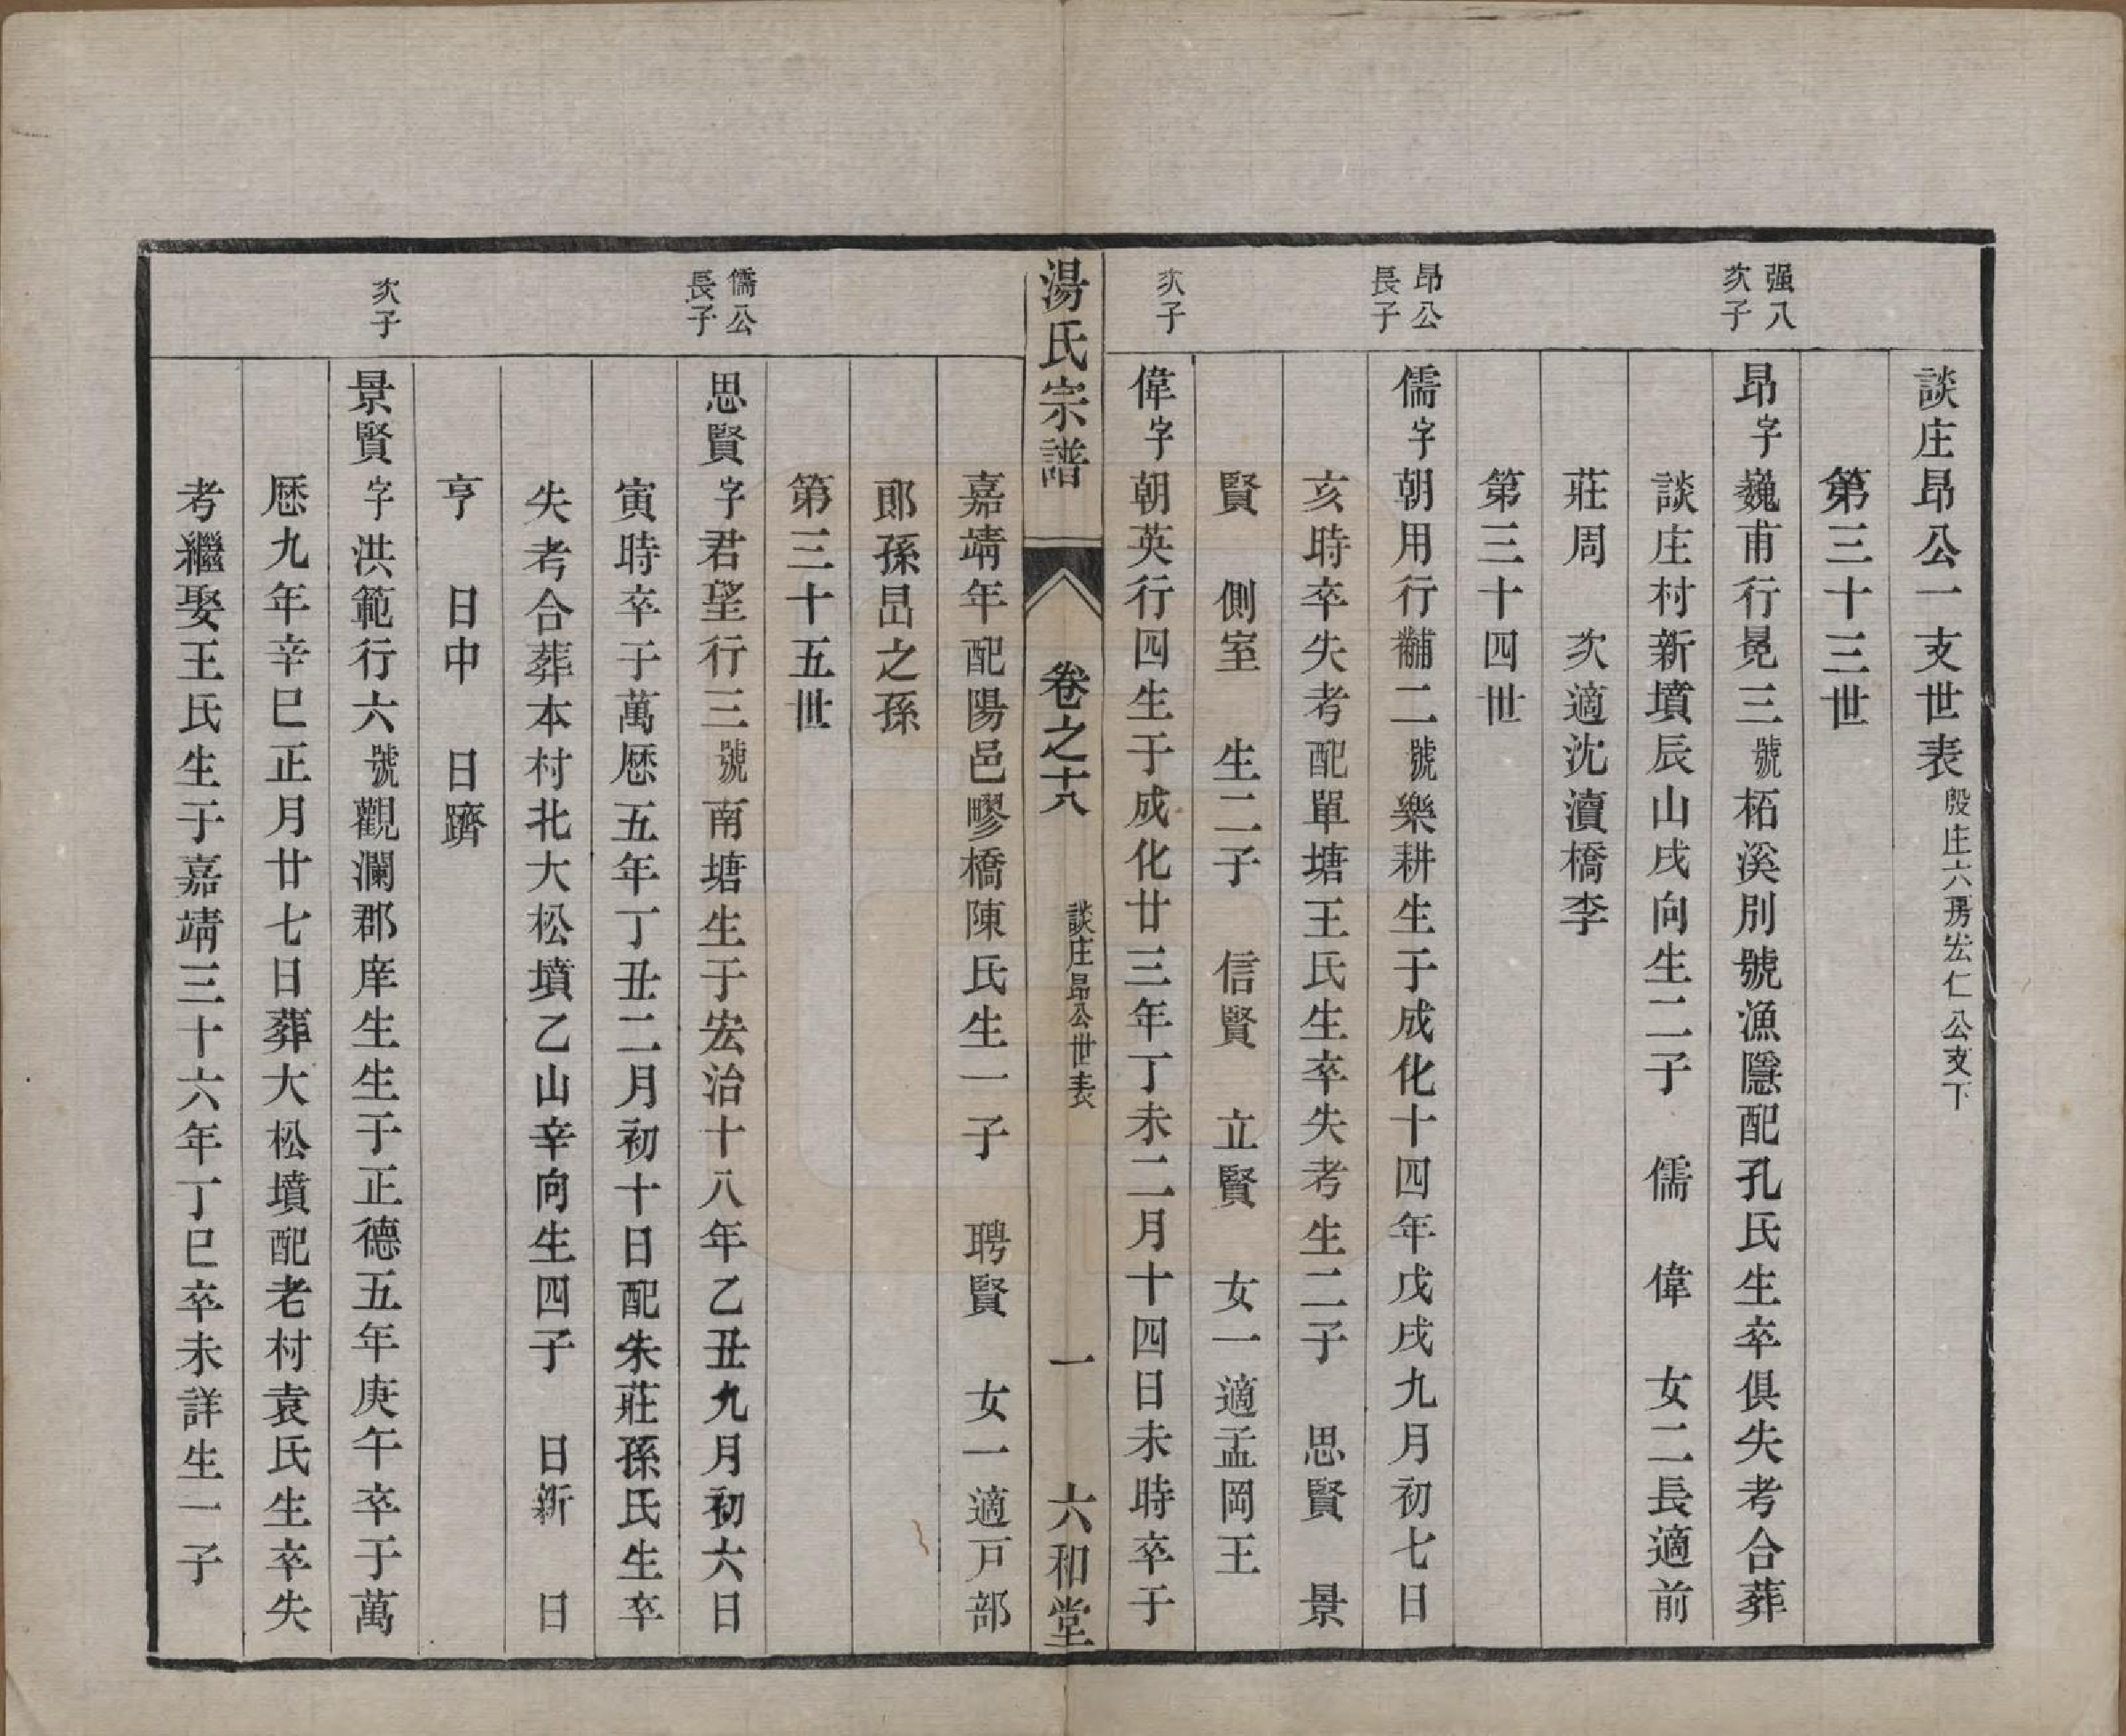 談庄昂公一支世表 殷庄六房宏仁公支下
第三十三世
强八次子
昂字巍甫行冕三號柘溪別號漁隱配孔氏生卒俱失考合葬
談庄村新墳辰山戌向生二子 儒 偉 女二長適前
莊周 次適沈瀆橋李
第三十四世
昂公長子
儒字朝用行黼二號樂耕生于成化十四年戊戌九月初七日
亥時卒失考配單塘王氏生卒失考生二子 思賢 景
賢 側室 生二子 信賢 立賢 女一適孟岡王
次子
偉字朝英行四生于成化廿三年丁未二月十四日未時卒于
湯氏宗譜 卷之十八 談庄昂公世表 一 六和堂
嘉靖年配陽邑疁橋陳氏生一子 聘賢 女一適戸部
郎孫昺之孫
第三十五世
儒公長子
思賢字君望行三號南塘生于宏治十八年乙丑九月初六日
寅時卒于萬厯五年丁丑二月初十日配朱莊孫氏生卒
失考合葬本村北大松墳乙山辛向生四子 日新 日
亨 日中 日躋
次子
景賢字洪範行六號觀瀾郡庠生生于正德五年庚午卒于萬
厯九年辛巳正月廿七日葬大松墳配老村袁氏生卒失
考繼娶王氏生于嘉靖三十六年丁巳卒未詳生一子